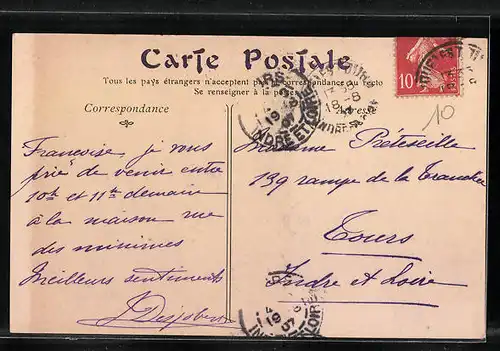 Carte Postale
Tous les pays étrangers n'acceptent pas la correspondance au recto
Se renseigner à la poste
Correspondance
Adresse
10
10
Francoise, je vous
prie de venir entre
10h et 11h demain
à la maison rue
des minimes
Meilleurs sentiments
J Desjobert
Madame Préteseille
139 rampe de la Tranchée
Tours
Indre et Loire
TOURS
INDRE ET LOIRE